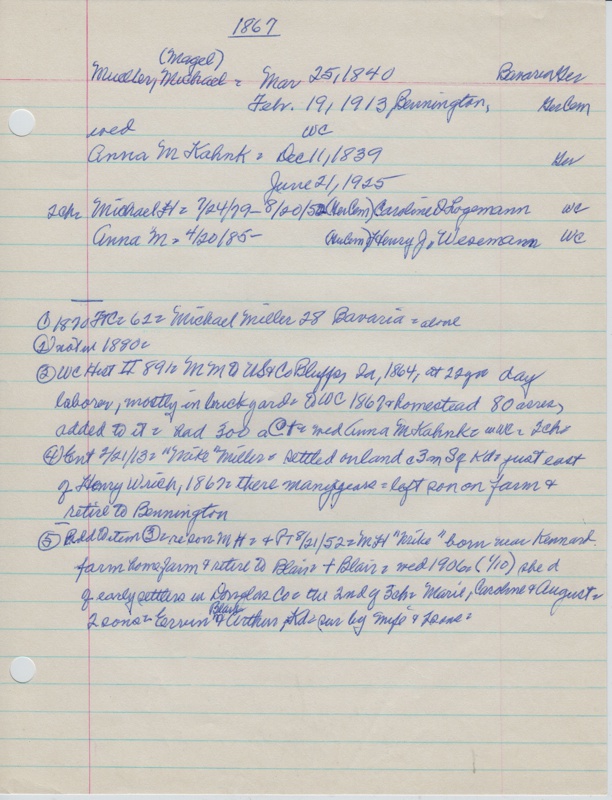 1867
(Magel)
Mueller, Michael = Mar 25, 1840 Bavaria Ger
Febr. 19, 1913 Bennington, Ger Cem
wed WC
Anna M Kahnk = Dec 11, 1839 Ger
June 21, 1925
2ch= Michael H = 7/24/79 - 8/20/52 (Ger Cem) Caroline D Logemann WC
Anna M = 4/20/85 - (Ger Cem) Henry J. Wesemann WC
① 1870 FTC = 62 = Michael Miller 28 Bavaria = alone
② not in 1880 =
③ WC Hist II 891 = MM to US & Co Bluffs, Ia, 1864, at 22 yrs day
laborer, mostly in brickyard = to WC 1867 & homestead 80 acres,
added to it = had 300 a Ct = wed Anna M Kahnk = WC = 2ch=
④ Ent 2/21/13 = "Mike" Miller = settled on land c 3m SE Kd = just east
of Henry Wrich, 1867 = there many years = left son on farm &
retire to Bennington
⑤ Add to item ③ = re son MH = + P + 8/21/52 = MH "Mike" born near Kennard
farm home farm & retire to Blair = + Blair = wed 1906 = (1/10) she d
of early settlers in Douglas Co = the 2nd of 3ch = Marie, Caroline & August =
Blair
2 sons = Ervin & Arthur, Kd = sur by wife & 2 sons =